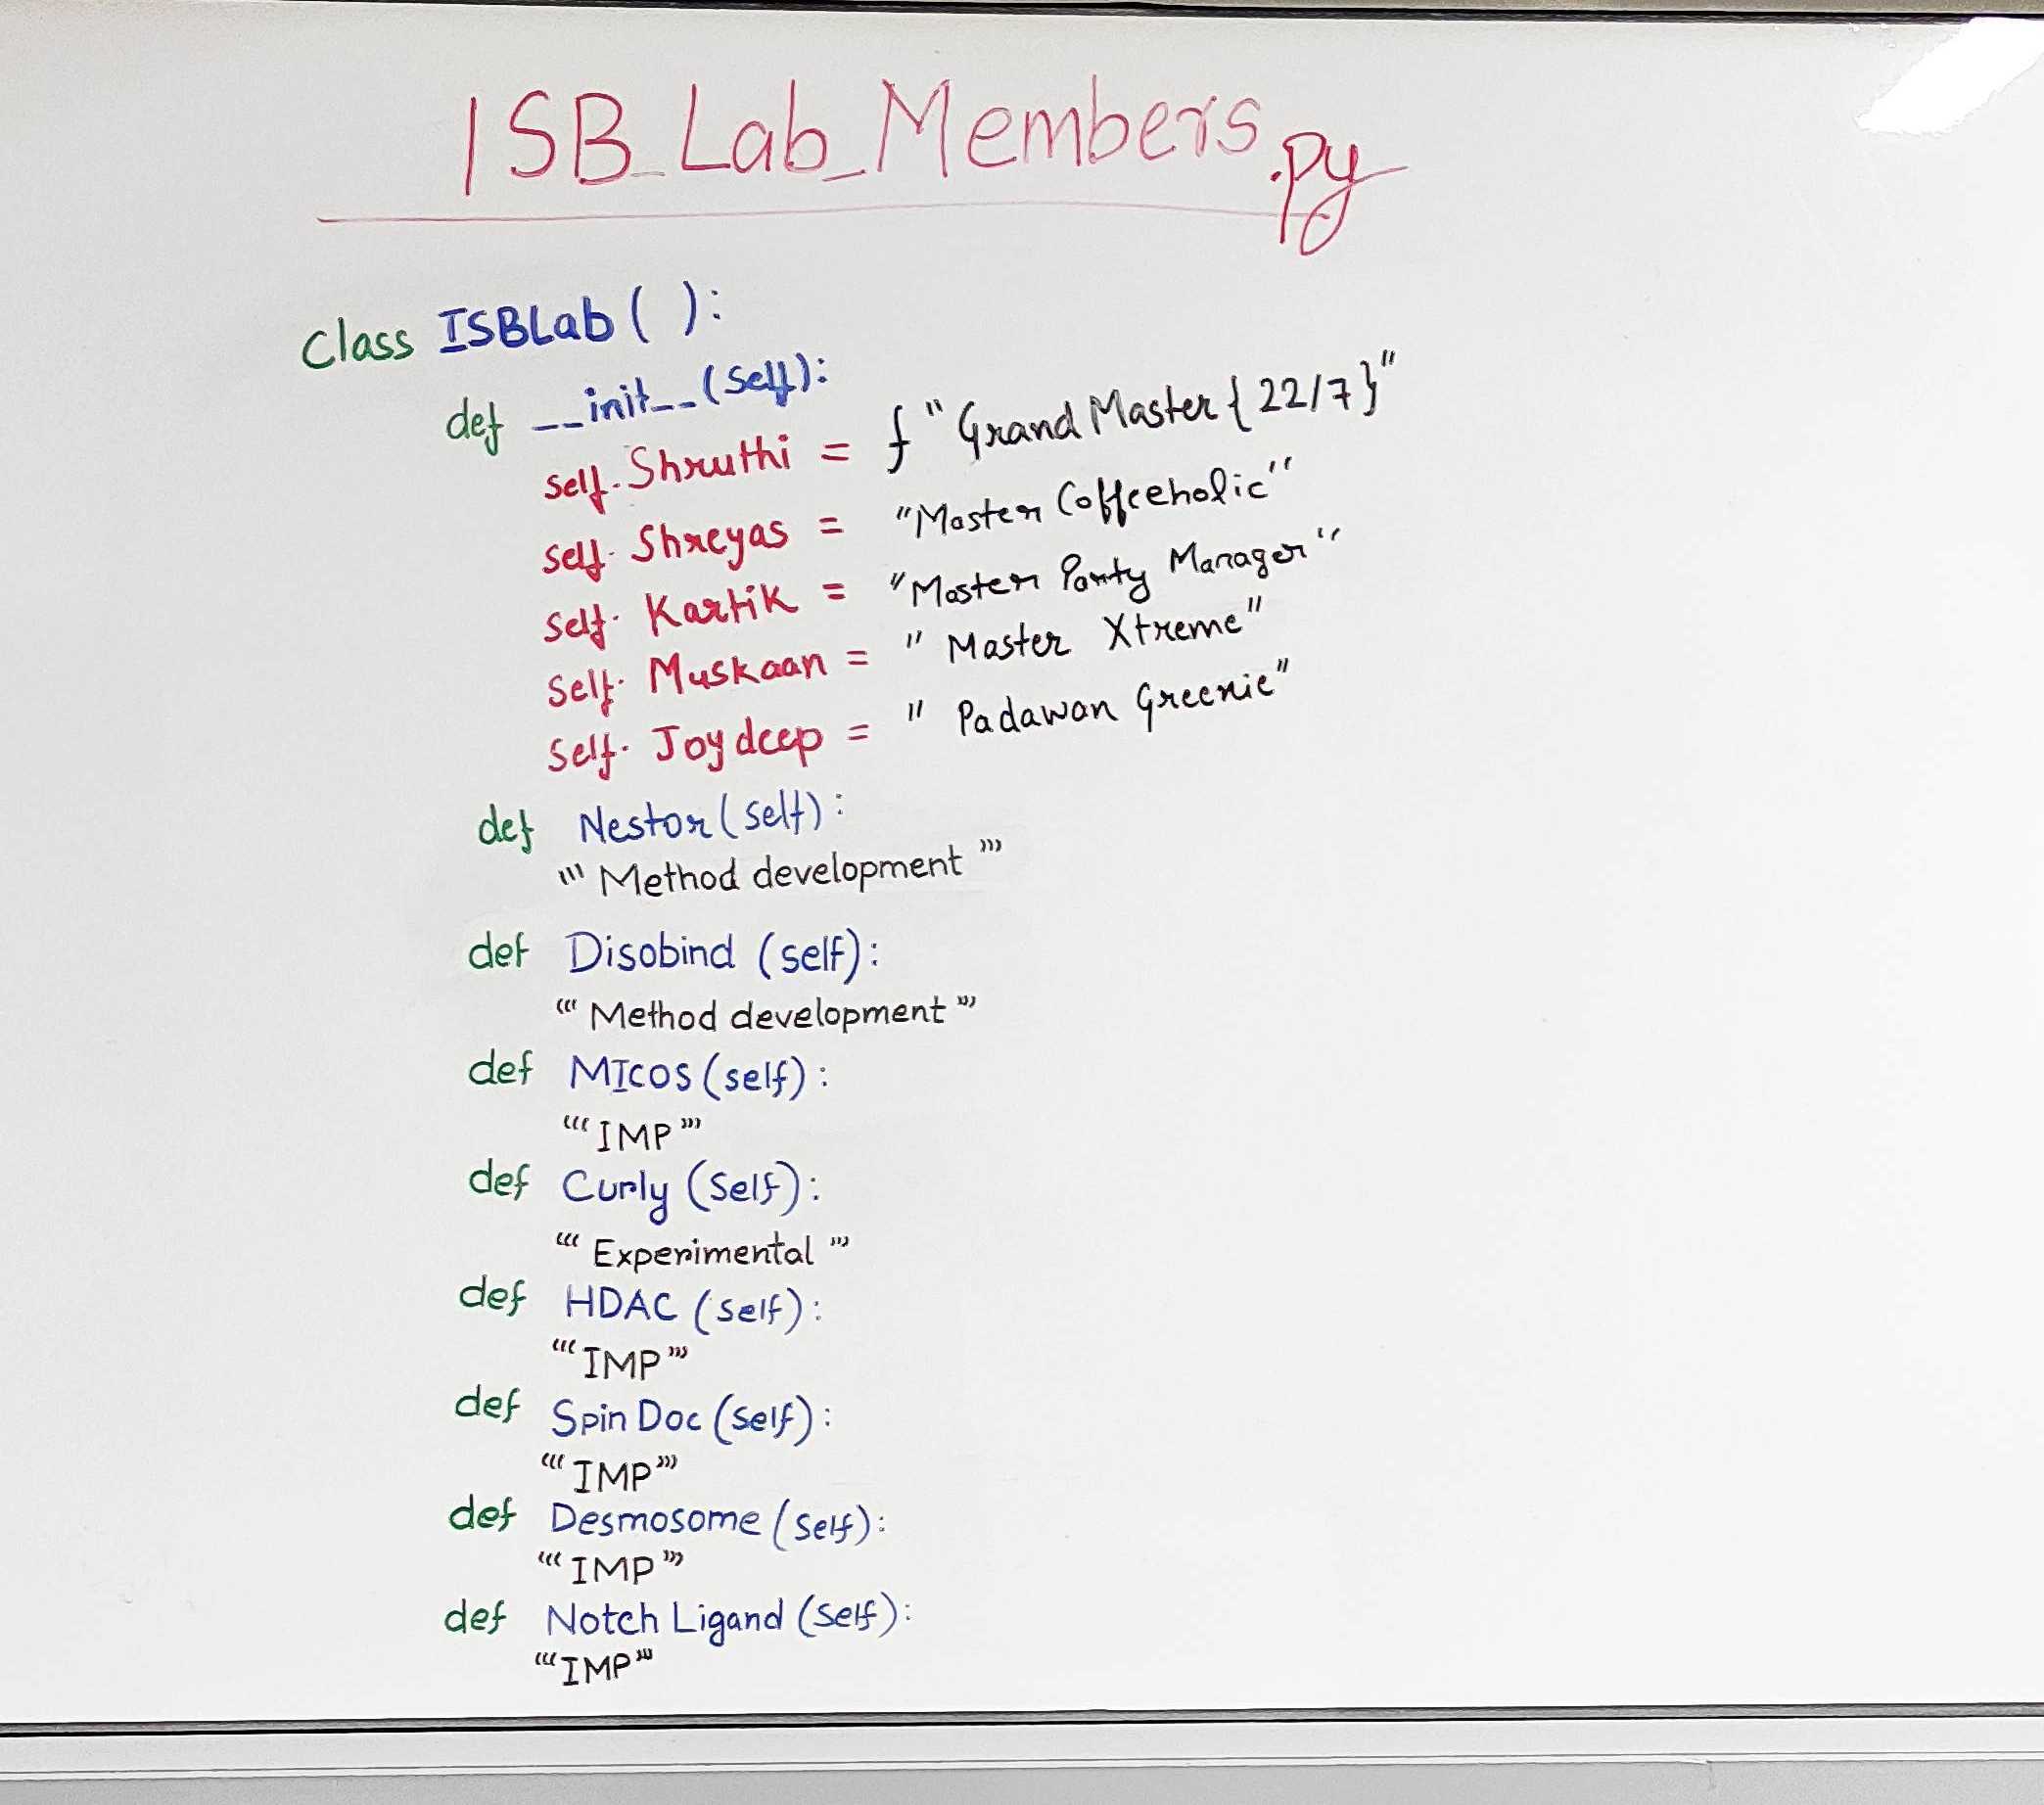 ISB_Lab_Members.py
class ISBLab( ):
def __init__(self):
self.Shruthi = f"Grand Master {22/7}"
self.Shreyas = "Master Coffeeholic"
self.Kartik = "Master Party Manager"
self.Muskaan = "Master Xtreme"
self.Joydeep = "Padawan Greenie"
def Nestor(self):
'''Method development'''
def Disobind (self):
'''Method development'''
def MICOS (self):
'''IMP'''
def Curly (self):
'''Experimental'''
def HDAC (self):
'''IMP'''
def Spin Doc (self):
'''IMP'''
def Desmosome (self):
'''IMP'''
def Notch Ligand (self):
'''IMP'''